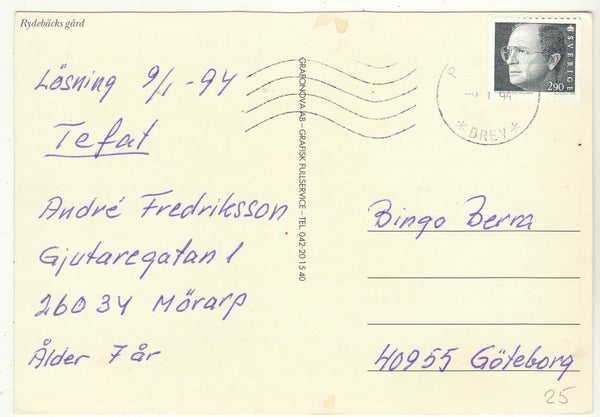 Rydebäcks gård
Lösning 9/1 -94
Tefat
André Fredriksson
Gjutaregatan 1
260 34 Mörarp
Ålder 7 år
GRAFONOVA AB – GRAFISK FULLSERVICE – TEL 042-20 15 40
SVERIGE
290
1 94
* BREV *
Bingo Berra
40955 Göteborg
25